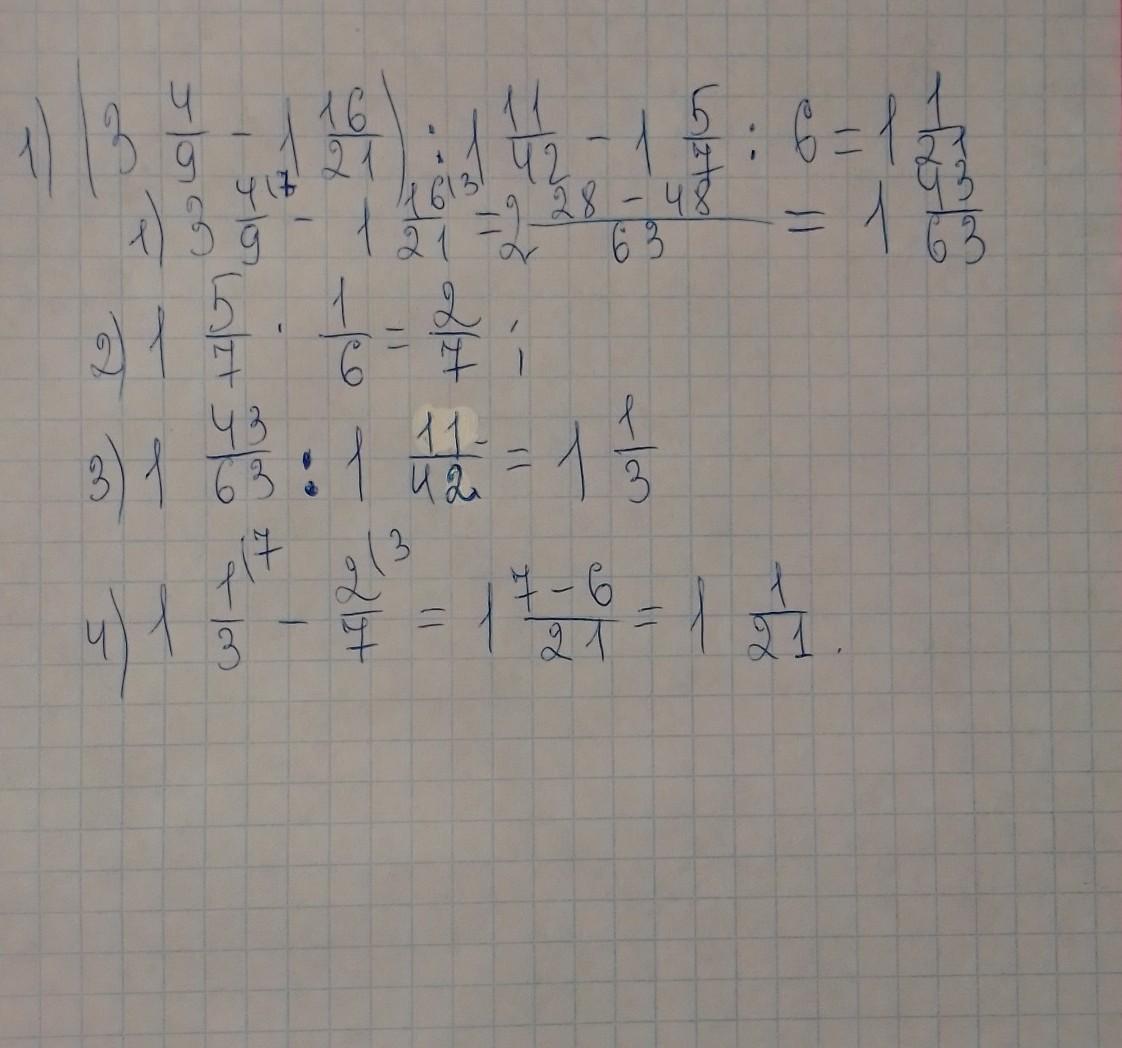 1) (3 4/9 - 1 16/21) : 1 11/42 - 1 5/7 : 6 = 1 1/21
1) 3 4/9 (7 - 1 16/21 (3 = 2 28 - 48/63 = 1 43/63
2) 1 5/7 · 1/6 = 2/7 ;
3) 1 43/63 : 1 11/42 = 1 1/3
4) 1 1/3 (7 - 2/7 (3 = 1 7 - 6/21 = 1 1/21 .